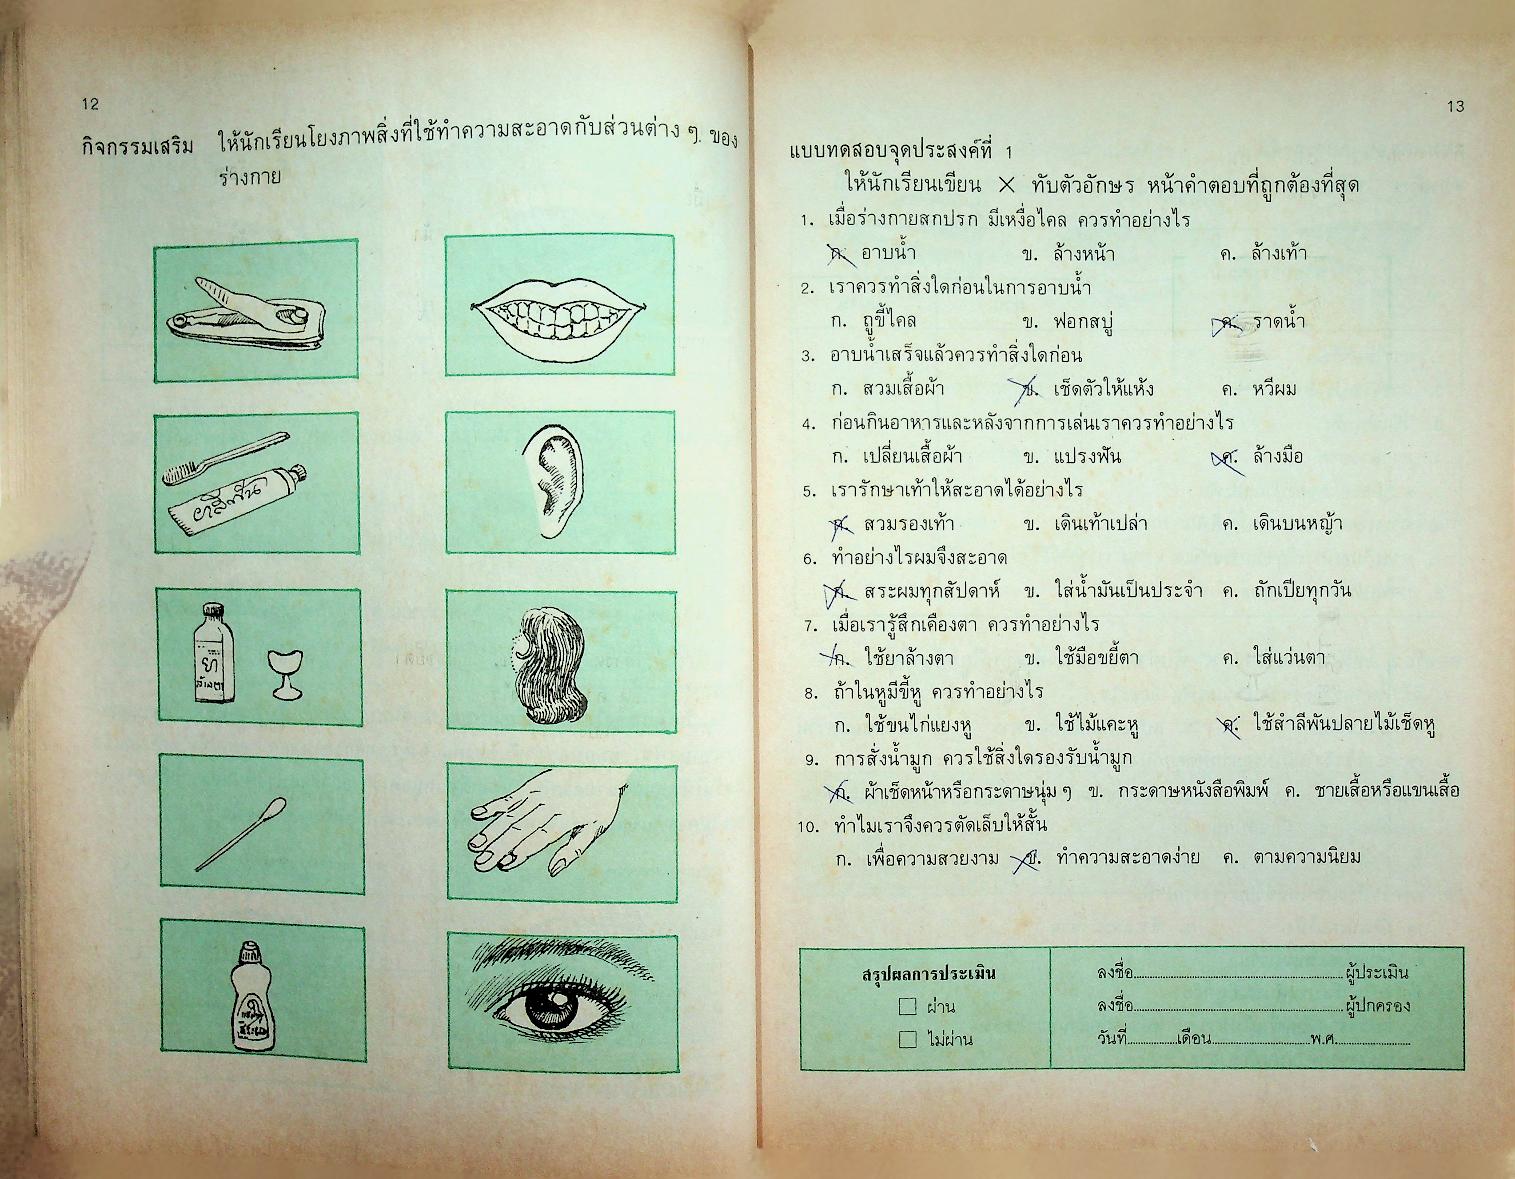 12
กิจกรรมเสริม ให้นักเรียนโยงภาพสิ่งที่ใช้ทำความสะอาดกับส่วนต่าง ๆ ของ
ร่างกาย
ยาสีฟัน
ยา
ล้างตา
สระผม
13
แบบทดสอบจุดประสงค์ที่ 1
ให้นักเรียนเขียน × ทับตัวอักษร หน้าคำตอบที่ถูกต้องที่สุด
1. เมื่อร่างกายสกปรก มีเหงื่อไคล ควรทำอย่างไร
ก. อาบน้ำ ข. ล้างหน้า ค. ล้างเท้า
2. เราควรทำสิ่งใดก่อนในการอาบน้ำ
ก. ถูขี้ไคล ข. ฟอกสบู่ ค. ราดน้ำ
3. อาบน้ำเสร็จแล้วควรทำสิ่งใดก่อน
ก. สวมเสื้อผ้า ข. เช็ดตัวให้แห้ง ค. หวีผม
4. ก่อนกินอาหารและหลังจากการเล่นเราควรทำอย่างไร
ก. เปลี่ยนเสื้อผ้า ข. แปรงฟัน ค. ล้างมือ
5. เรารักษาเท้าให้สะอาดได้อย่างไร
ก. สวมรองเท้า ข. เดินเท้าเปล่า ค. เดินบนหญ้า
6. ทำอย่างไรผมจึงสะอาด
ก. สระผมทุกสัปดาห์ ข. ใส่น้ำมันเป็นประจำ ค. ถักเปียทุกวัน
7. เมื่อเรารู้สึกเคืองตา ควรทำอย่างไร
ก. ใช้ยาล้างตา ข. ใช้มือขยี้ตา ค. ใส่แว่นตา
8. ถ้าในหูมีขี้หู ควรทำอย่างไร
ก. ใช้ขนไก่แยงหู ข. ใช้ไม้แคะหู ค. ใช้สำลีพันปลายไม้เช็ดหู
9. การสั่งน้ำมูก ควรใช้สิ่งใดรองรับน้ำมูก
ก. ผ้าเช็ดหน้าหรือกระดาษนุ่ม ๆ ข. กระดาษหนังสือพิมพ์ ค. ชายเสื้อหรือแขนเสื้อ
10. ทำไมเราจึงควรตัดเล็บให้สั้น
ก. เพื่อความสวยงาม ข. ทำความสะอาดง่าย ค. ตามความนิยม
สรุปผลการประเมิน
ผ่าน
ไม่ผ่าน
ลงชื่อ..........ผู้ประเมิน
ลงชื่อ..........ผู้ปกครอง
วันที่..........เดือน..........พ.ศ...........